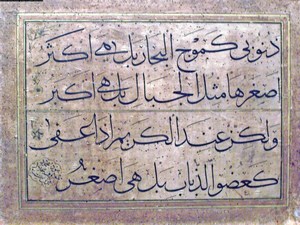 ذنوبي كموج البحار بل هي أكثر
اصغرها مثل الجبال بل هي أكبر
ولكن عند الكريم إذا عفى
كعضو الذباب بل هي اصغر